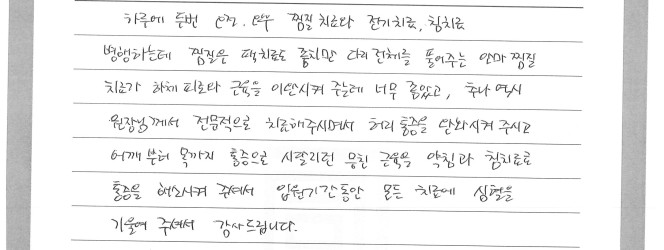 하루에 두번 오전.오후 찜질치료와 전기치료, 침치료
병행하는데 찜질은 팩치료도 좋치만 다리전체를 풀어주는 안마찜질
치료가 하체 피로와 근육을 이완시켜 주는데 너무 좋았고, 추나 역시
원장님께서 전문적으로 치료해주시며서 허리 통증을 완화시켜 주시고
어깨부터 목까지 통증으로 시달리던 뭉친 근육을 약침과 침치료로
통증을 해소시켜 주셔서 입원기간동안 모든 치료에 심혈을
기울여 주셔서 감사드립니다.